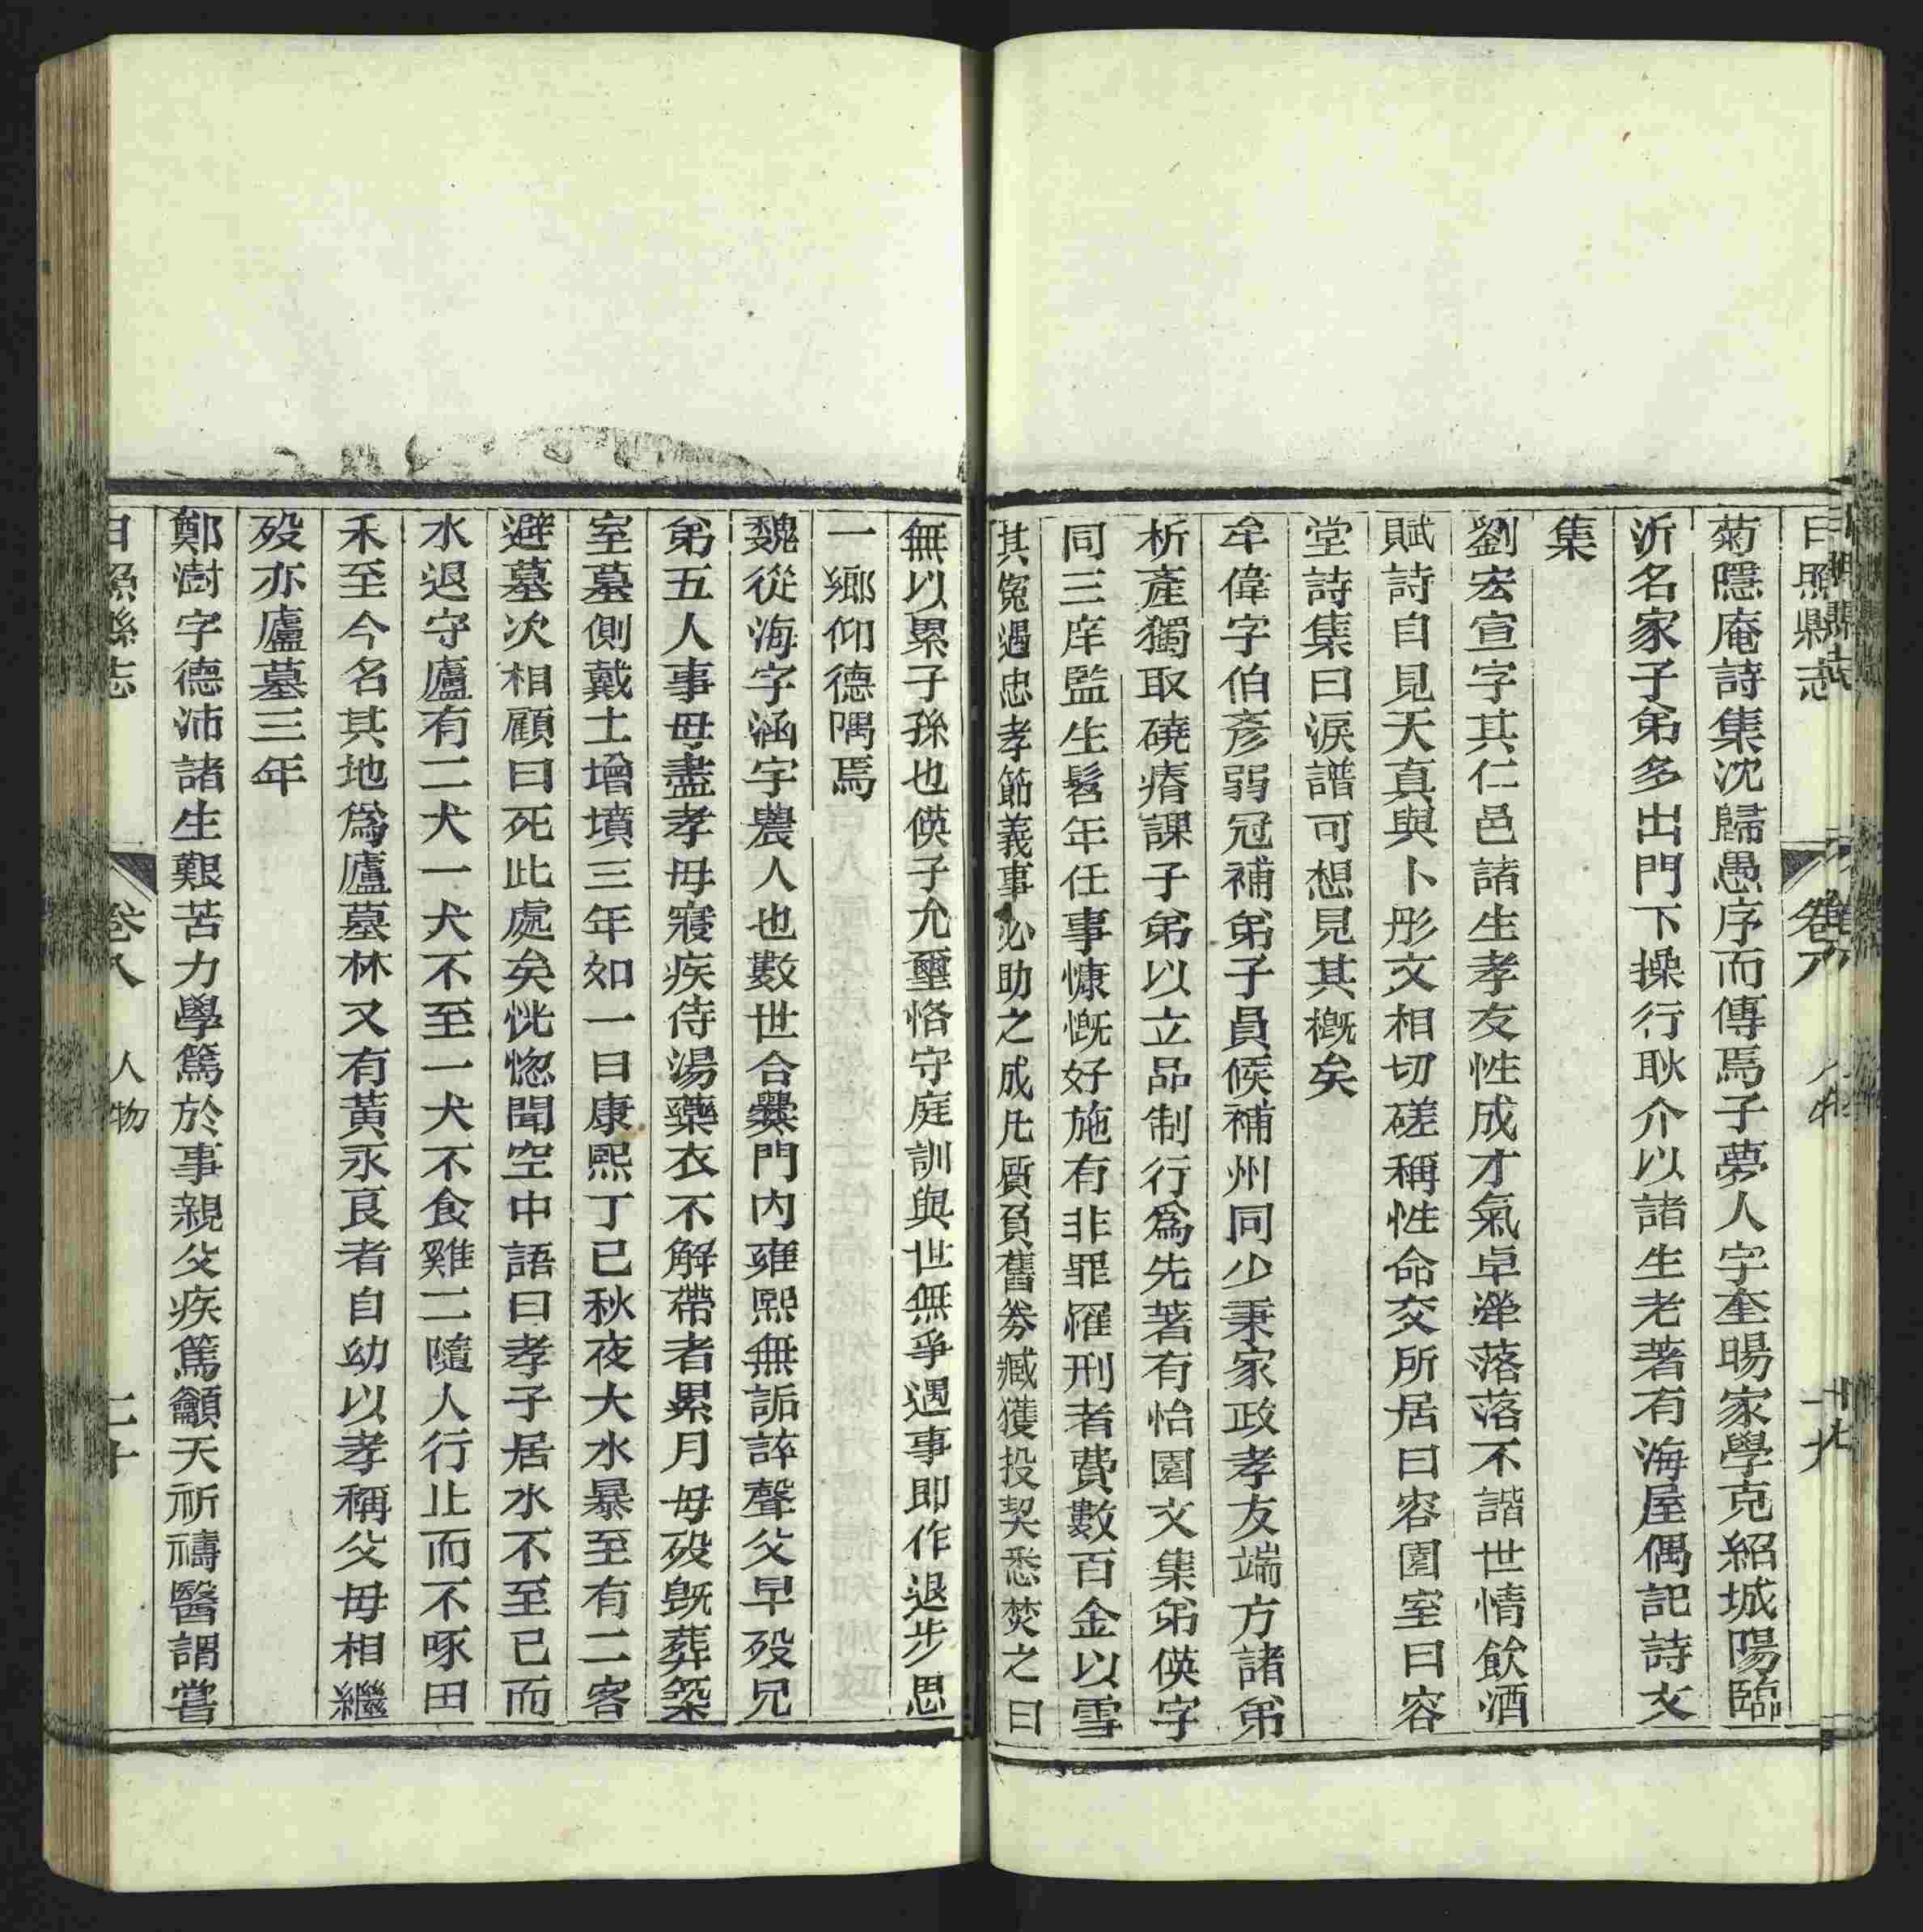 日照縣志 卷八 人物 十九
菊隱庵詩集沈歸愚序而傳焉子夢人字奎暘家學克紹城陽臨
沂名家子弟多出門下操行耿介以諸生老著有海屋偶記詩文
集
劉宏宣字其仁邑諸生孝友性成才氣卓犖落落不諧世情飲酒
賦詩自見天真與卜彤文相切磋稱性命交所居曰容園室曰容
堂詩集曰淚譜可想見其槪矣
牟偉字伯彥弱冠補弟子員候補州同少秉家政孝友端方諸弟
析產獨取磽瘠課子弟以立品制行爲先著有怡園文集弟偀字
同三庠監生髫年任事慷慨好施有非罪罹刑者費數百金以雪
其寃遇忠孝節義事必助之成凡質負舊券臧獲投契悉焚之曰
無以累子孫也偀子允璽恪守庭訓與世無爭遇事即作退步思
一鄉仰德隅焉
魏從海字涵宇農人也數世合爨門内雍熙無詬誶聲父早歿兄
弟五人事毋盡孝毋寢疾侍湯藥衣不解帶者累月毋歿旣葬築
室墓側戴土增墳三年如一日康熙丁巳秋夜大水暴至有二客
避墓次相顧曰死此處矣恍惚聞空中語曰孝子居水不至已而
水退守廬有二犬一犬不至一犬不食雞二隨人行止而不啄田
禾至今名其地爲廬墓林又有黃永良者自幼以孝稱父毋相繼
歿亦廬墓三年
鄭澍字德沛諸生艱苦力學篤於事親父疾篤籲天祈禱醫謂嘗
日照縣志 卷八 人物 二十